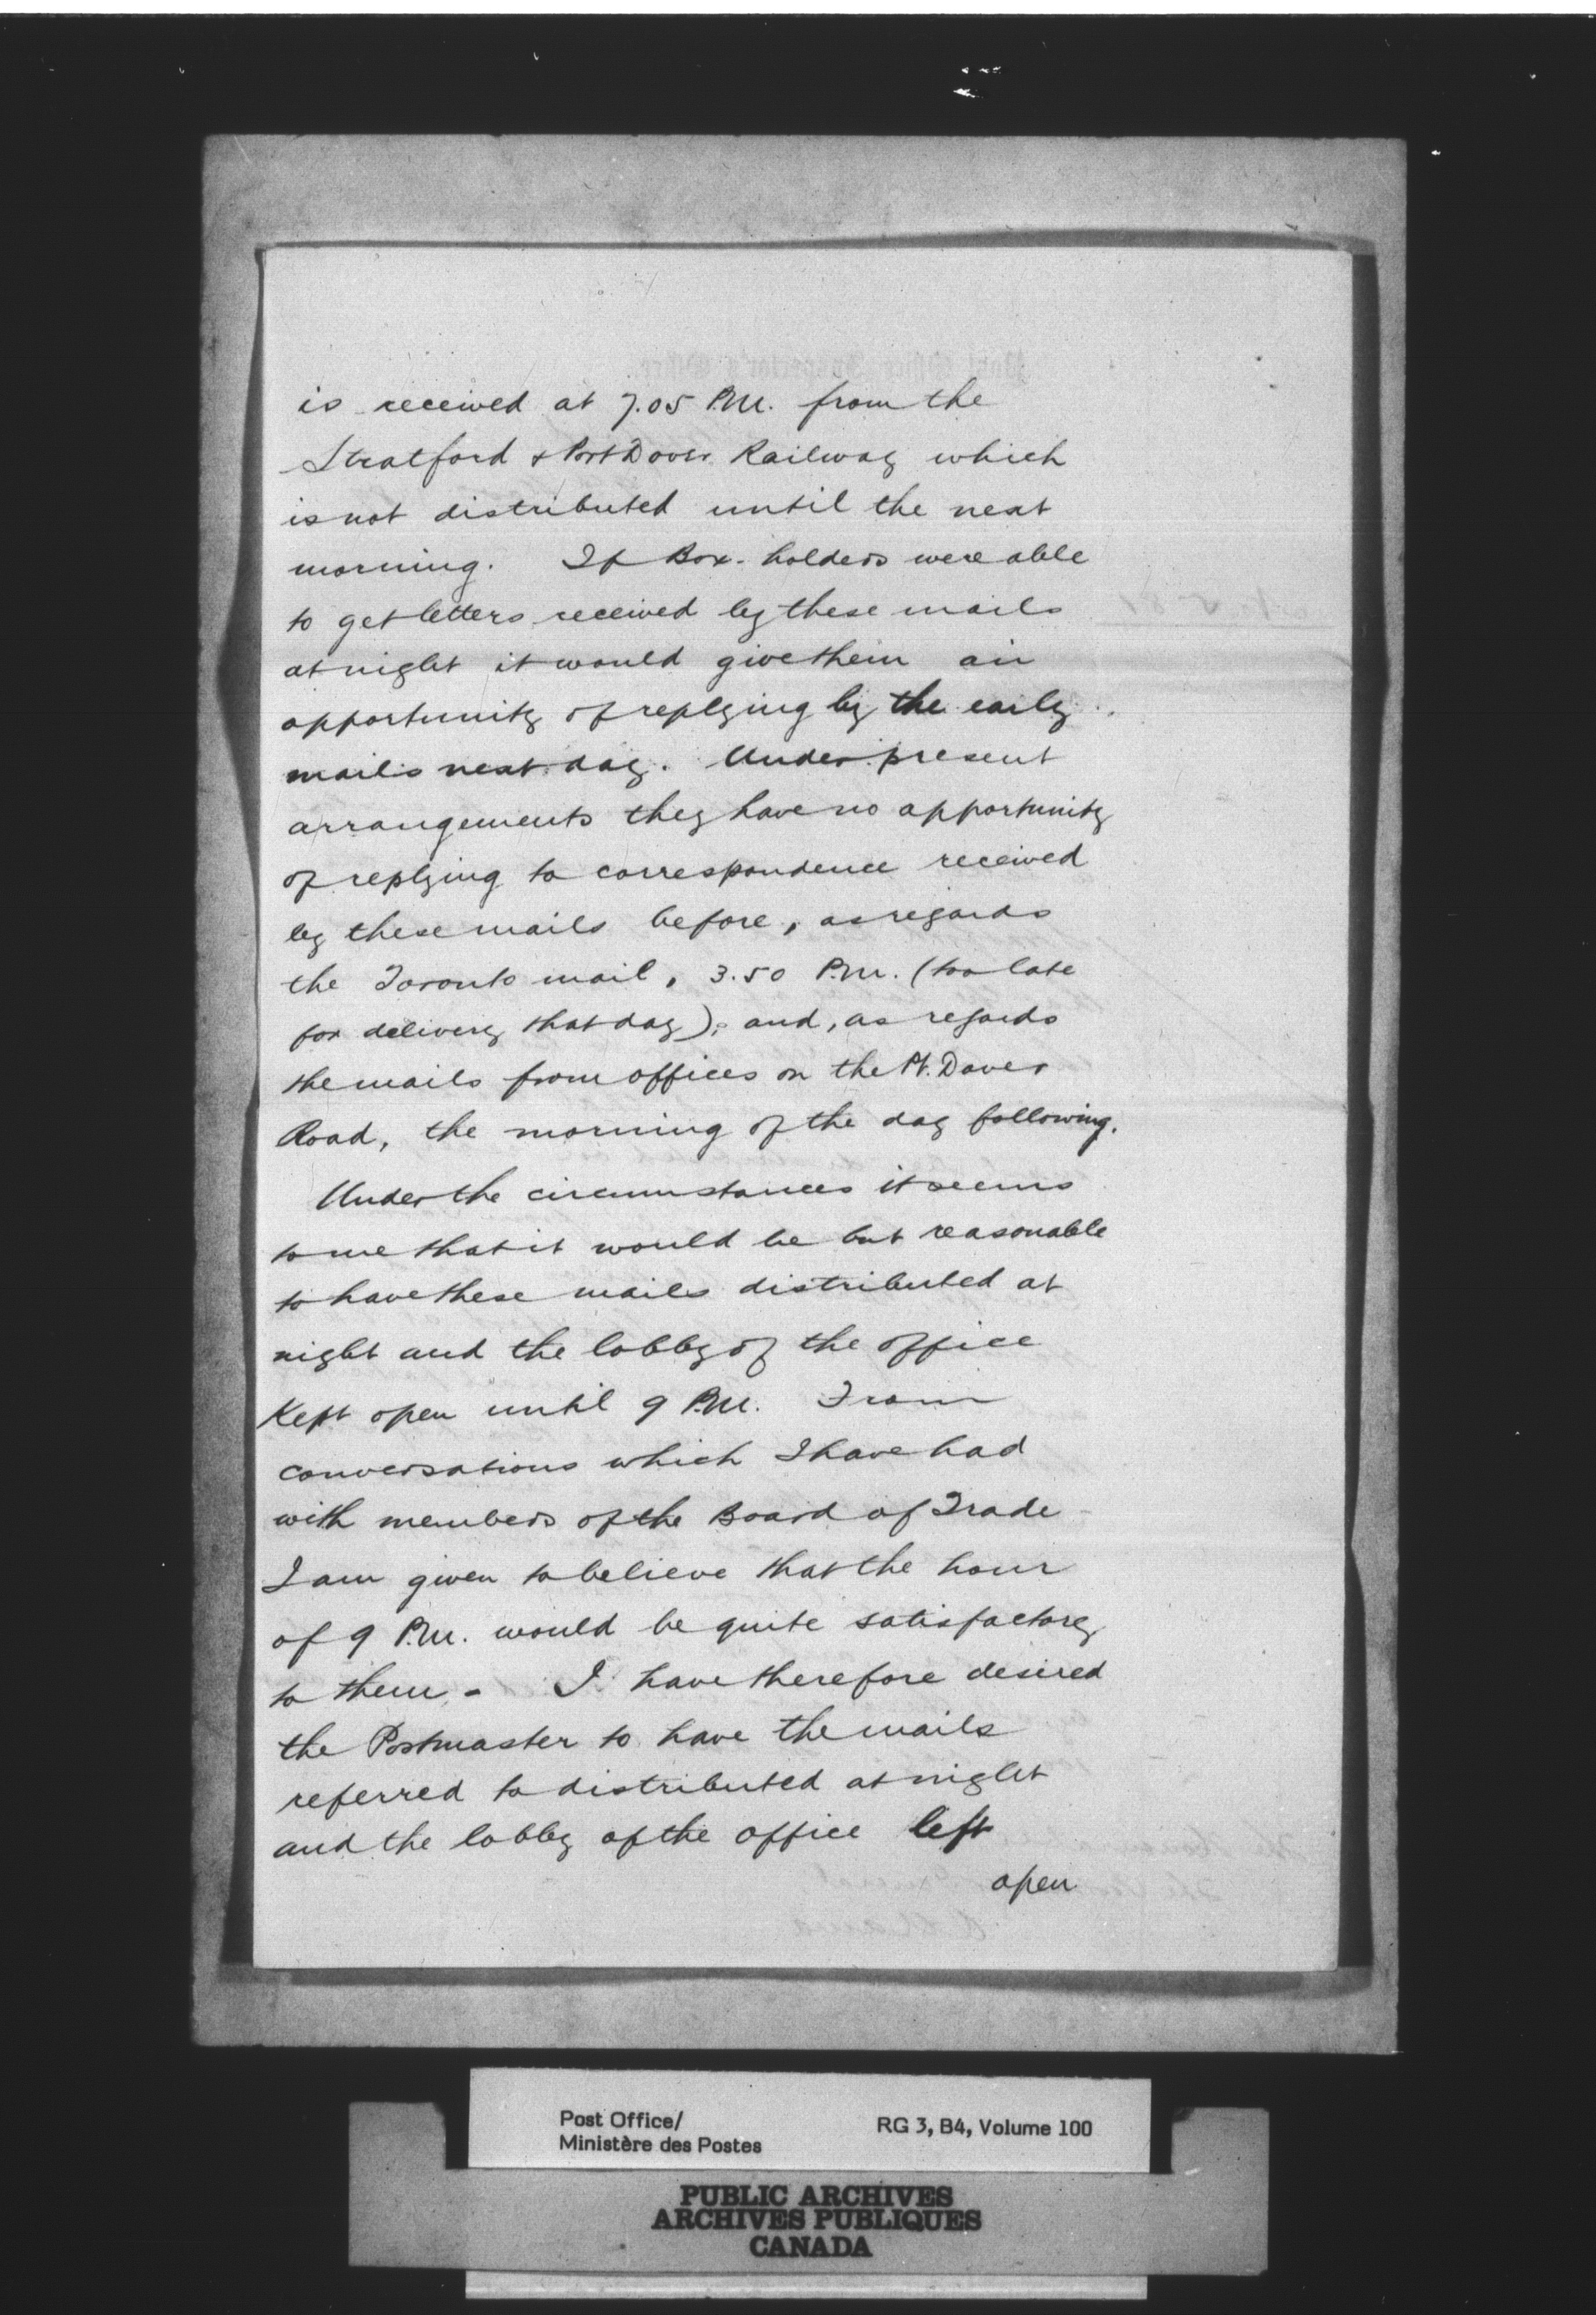 is received at 7.05 P.M. from the
Stratford & Port Dover Railway which
is not distributed until the next
morning. If Box-holders were able
to get letters received by these mails
at night it would give them an
opportunity of replying by the early
mails next day. Under present
arrangements they have no opportunity
of replying to correspondence received
by these mails before, as regards
the Toronto mail, 3.50 P.M. (too late
for delivery that day); and, as regards
the mails from offices on the Pt. Dover
Road, the morning of the day following.
Under the circumstances it seems
to me that it would be but reasonable
to have these mails distributed at
night and the lobby of the office
Kept open until 9 P.M. From
conversations which I have had
with members of the Board of Trade
I am given to believe that the hour
of 9 P.M. would be quite satisfactory
to them - I have therefore desired
the Postmaster to have the mails
referred to distributed at night
and the lobby of the office left
open
Post Office/
Ministère des Postes
RG 3, B4, Volume 100
PUBLIC ARCHIVES
ARCHIVES PUBLIQUES
CANADA